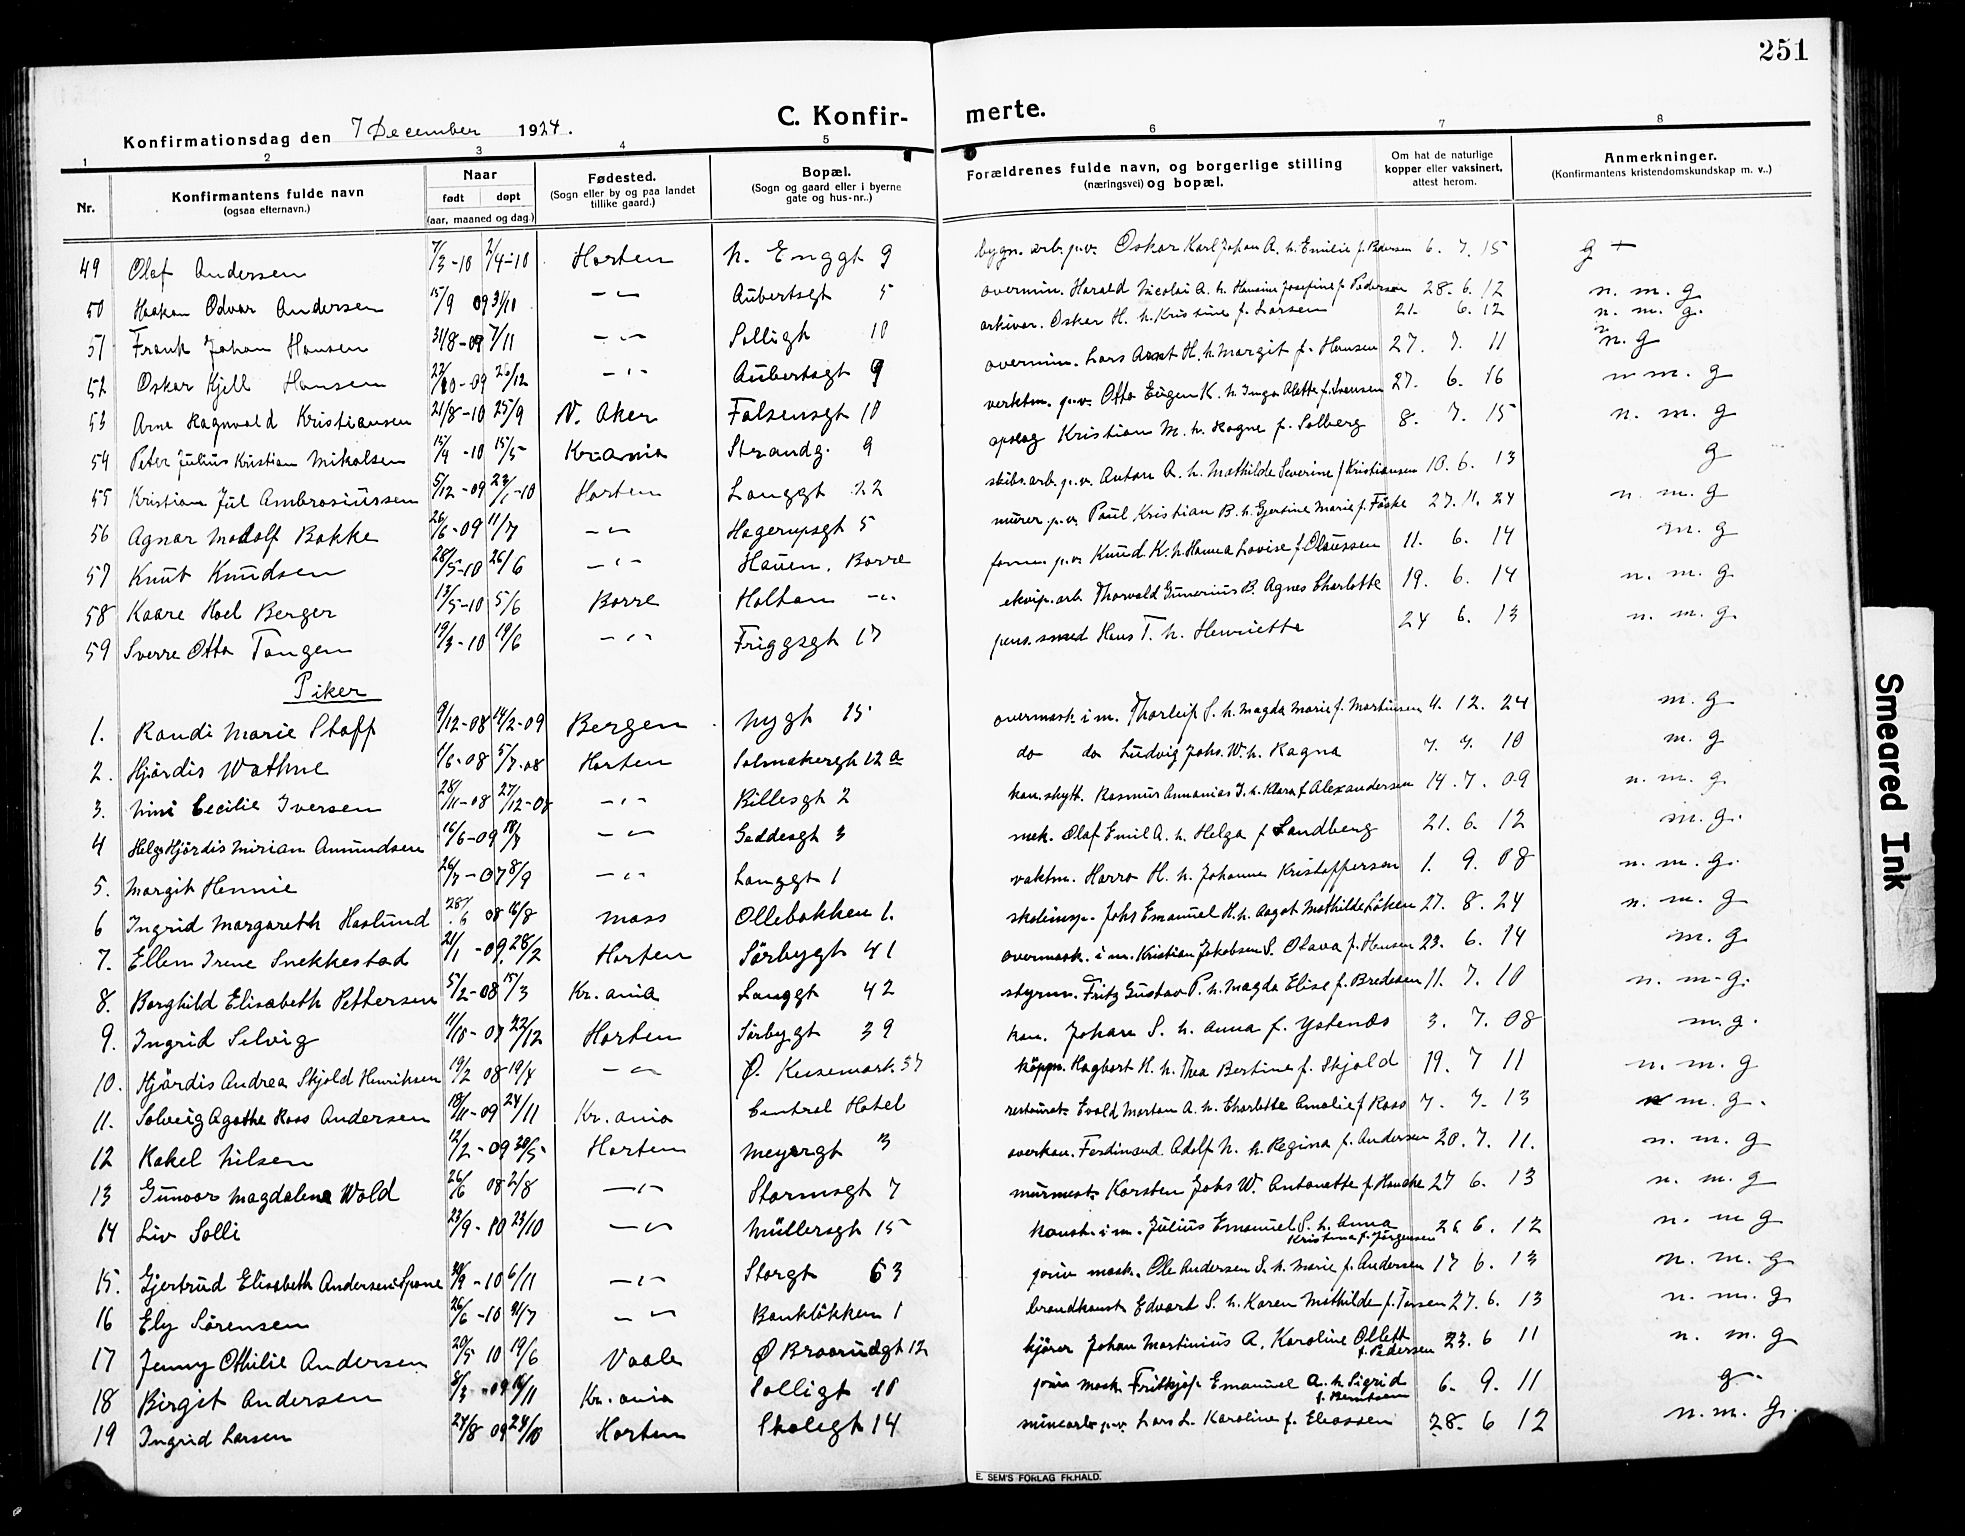 251
C. Konfir- merte.
Konfirmationsdag den 7 December 1924.
1 2 3 4 5 6 7 8
Nr.
Konfirmantens fulde navn
(ogsaa efternavn.)
Naar
født døpt
(aar, maaned og dag.)
Fødested.
(Sogn eller by og paa landet
tillike gaard.)
Bopæl.
(Sogn og gaard eller i byerne
gate og hus-nr..)
Forældrenes fulde navn, og borgerlige stilling
(næringsvei) og bopæl.
Om hat de naturlige
kopper eller vaksinert,
attest herom.
Anmerkninger.
(Konfirmantens kristendomskundskap m. v..)
49 Olaf Andersen 7/3-10 2/4-10 Horten N. Enggt 9 bygn. arb. p.v. Oskar Karl Johan A. h. Emilie f. Pedersen 6. 7. 15 g +
50 Haakon Odvar Andersen 15/9 09 31/10 -"- Aubertsgt 5 overmin. Harald Nicolai A. h. Hansine Josefine f. Pedersen 28. 6. 12 n. m. g
51 Frank Johan Hansen 31/8-09 7/11 -"- Solligt 10 arkivar. Oskar H. h. Kristine f. Larsen 21. 6. 12 n. m. g.
52 Oskar Kjell Hansen 22/10-09 26/12 -"- Aubertsgt 9 overmin. Lars Arnt H. h. Margit f. Hansen 27. 7. 11 n. g
53 Arne Ragnvald Kristiansen 21/8-10 25/9 V. Aker Falsensgt 10 verktm. p.v. Otto Eugen K. h. Inga Alette f. Svensen 27. 6. 16 n m. g
54 Peter Julius Kristian Mikalsen 15/4-10 15/5 Kr.ania Strandg. 9 Kristian M. h. Ragna f. Solberg 8. 7. 15 n. m. g
55 Kristian Jul Ambrosiussen 5/12-09 23/1-10 Horten Langgt 22 skibs.arb. p.v. Anton A. h. Mathilde Severine f Kristiansen 10. 6. 13 g
56 Agnar Madolf Bakke 26/6-09 11/7 -"- Hagerupsgt 5 murer p.v. Paul Kristian B. h. Gjertine Marie f. Fåske 27. 11. 24 n. m. g
57 Knut Knudsen 28/5-10 26/6 -"- Hauen. Borre p.v. Knud K. h. Hanna Lovise f. Olaussen 11. 6. 14 m. g
58 Kaare Hoel Berger 13/5-10 5/6 Borre Holtan -"- ekvip. arb. Thorvald Gunerius B. Agnes Charlotte 19. 6. 14 n. m. g
59 Sverre Otto Tangen 19/3-10 19/6 -"- Friggsgt 17 pens. smed Hans T. h. Henriette 24 6. 13 n. m. g.
Piker
1. Randi Marie Staff 9/12-08 14/2-09 Bergen Nygt 15 overmask. i m. Thorleif S. h. Magda Marie f. Martinsen 4. 12. 24 m. g
2. Hjördis Wathne 1/6-08 5/7-08 Horten Solmakergt 12 a do do Ludvig Johs. W. h. Ragna 7. 7. 10 m. g
3. Nini Cecilie Iversen 28/11-08 27/12-08 -"- Billesgt 2 kan. skytt. Rasmus Annanias I. h. Klara f. Alexandersen 14. 7. 09 n. m. g
4 Helga Hjördis Mirian Amundsen 16/6-09 18/7 -"- Geddesgt 3 mek. Olaf Emil A. h. Helga f Landberg 21. 6. 12 m. g.
5. Margit Hennie 26/7-07 8/9 -"- Langgt 1 vaktm. Harro H. h. Johanne Kristoffersen 1. 9. 08 n. m. g.
6 Ingrid Margareth Haslund 28/6 08 16/8 Moss Ollebakken 1. skoleinsp. Johs Emanuel H. h. Aagot Mathilde Löken 27. 8. 24 n. m. g
7. Ellen Irene Snekkestad 21/1-09. 28/2 Horten Sörbygt 41 overmask. i m. Kristian Jakobsen S. Olava f. Hansen 23. 6. 14 m. g
8. Borghild Elisabeth Pettersen 5/2-08 15/3 Kr. ania Langgt 42 styrm. Fritz Gustav P. h. Magda Elise f. Bredesen 11. 7. 10 n. m. g.
9. Ingrid Selvig 11/10-07 22/12 Horten Sörbygt 39 kan. Johan S. h. Anna f. Ystenes 3. 7. 08 m. g.
10. Hjördis Andrea Skjold Henriksen 19/2 08 19/4 -"- Ø. Keisemark. 37 köpm. Hagbart H. h. Thea Bertine f. Skjold 19. 7 11 n. m. g
11. Solveig Agathe Roos Andersen 18/11-09 24/11 Kr. ania Central Hotel restaurat. Evald Morton A. h. Charlotte Amalie f Roos 7. 7. 13 m. g.
12 Rakel Nilsen 12/2-09 20/5 Horten Meyergt 3 overkan. Ferdinand Adolf N. h. Regina f. Andersen 20. 7. 11. n. m. g
13 Gunvor Magdalena Wold 26/6 08 2/8 -"- Stormsgt 7 murmest. Karsten Johs W. Antonette f. Hancke 27 6. 13 n. m. g
14 Liv Solli 23/9-10 23/10 -"- Müllersgt 15 konst. i m. Julius Emanuel S. h. Anna Kristina f. Jørgensen 26 6. 12 n. m g
15. Gjertrud Elisabeth Andersen Spone 30/9-10 6/11 -"- Storgt 63 Ole Andersen S. h. Marie f. Andersen 17 6. 13 n. m. g
16 Ely Sörensen 26/6-10 31/7 -"- Banklökken 1 brandkonst Edvard S. h. Karen Mathilde f. 27. 6. 13 n. m. g
17 Jenny Othilie Andersen 20/5 10 19/6 Vaale Ø Braarudgt 12 kjörer Johan Martinius A. Karoline Olette f. Pedersen 23. 6 11 n. m. g
18 Birgit Andersen Kr. ania Solligt 10 Fridtjof Emanuel A. h Sigrid f. Berntsen 6. 9. 11 g.
19 Ingrid Larsen 24/8 09 24/10 Horten Skolegt 14 minearb. p.v. Lars L. Karoline f. Eliassen 28. 6 12 n. m. g.
E. SEM'S FORLAG FR.HALD.
Smeared Ink